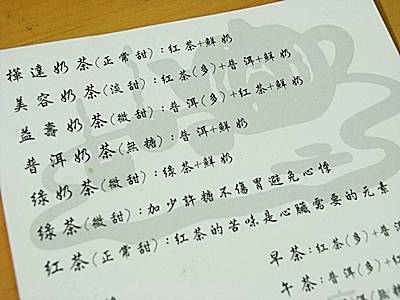 樺達奶茶(正常甜):紅茶+鮮奶
美容奶茶(淡甜):紅茶(多)+普洱+鮮奶
益壽奶茶(微甜):普洱(多)+紅茶+鮮奶
普洱奶茶(無糖):普洱+鮮奶
綠奶茶(微甜):綠茶+鮮奶
綠茶(微甜):加少許糖不傷胃避免心悸
紅茶(正常甜):紅茶的苦味是心臟需要的元素
早茶:紅茶(多)+普
午茶:普洱(多)+紅